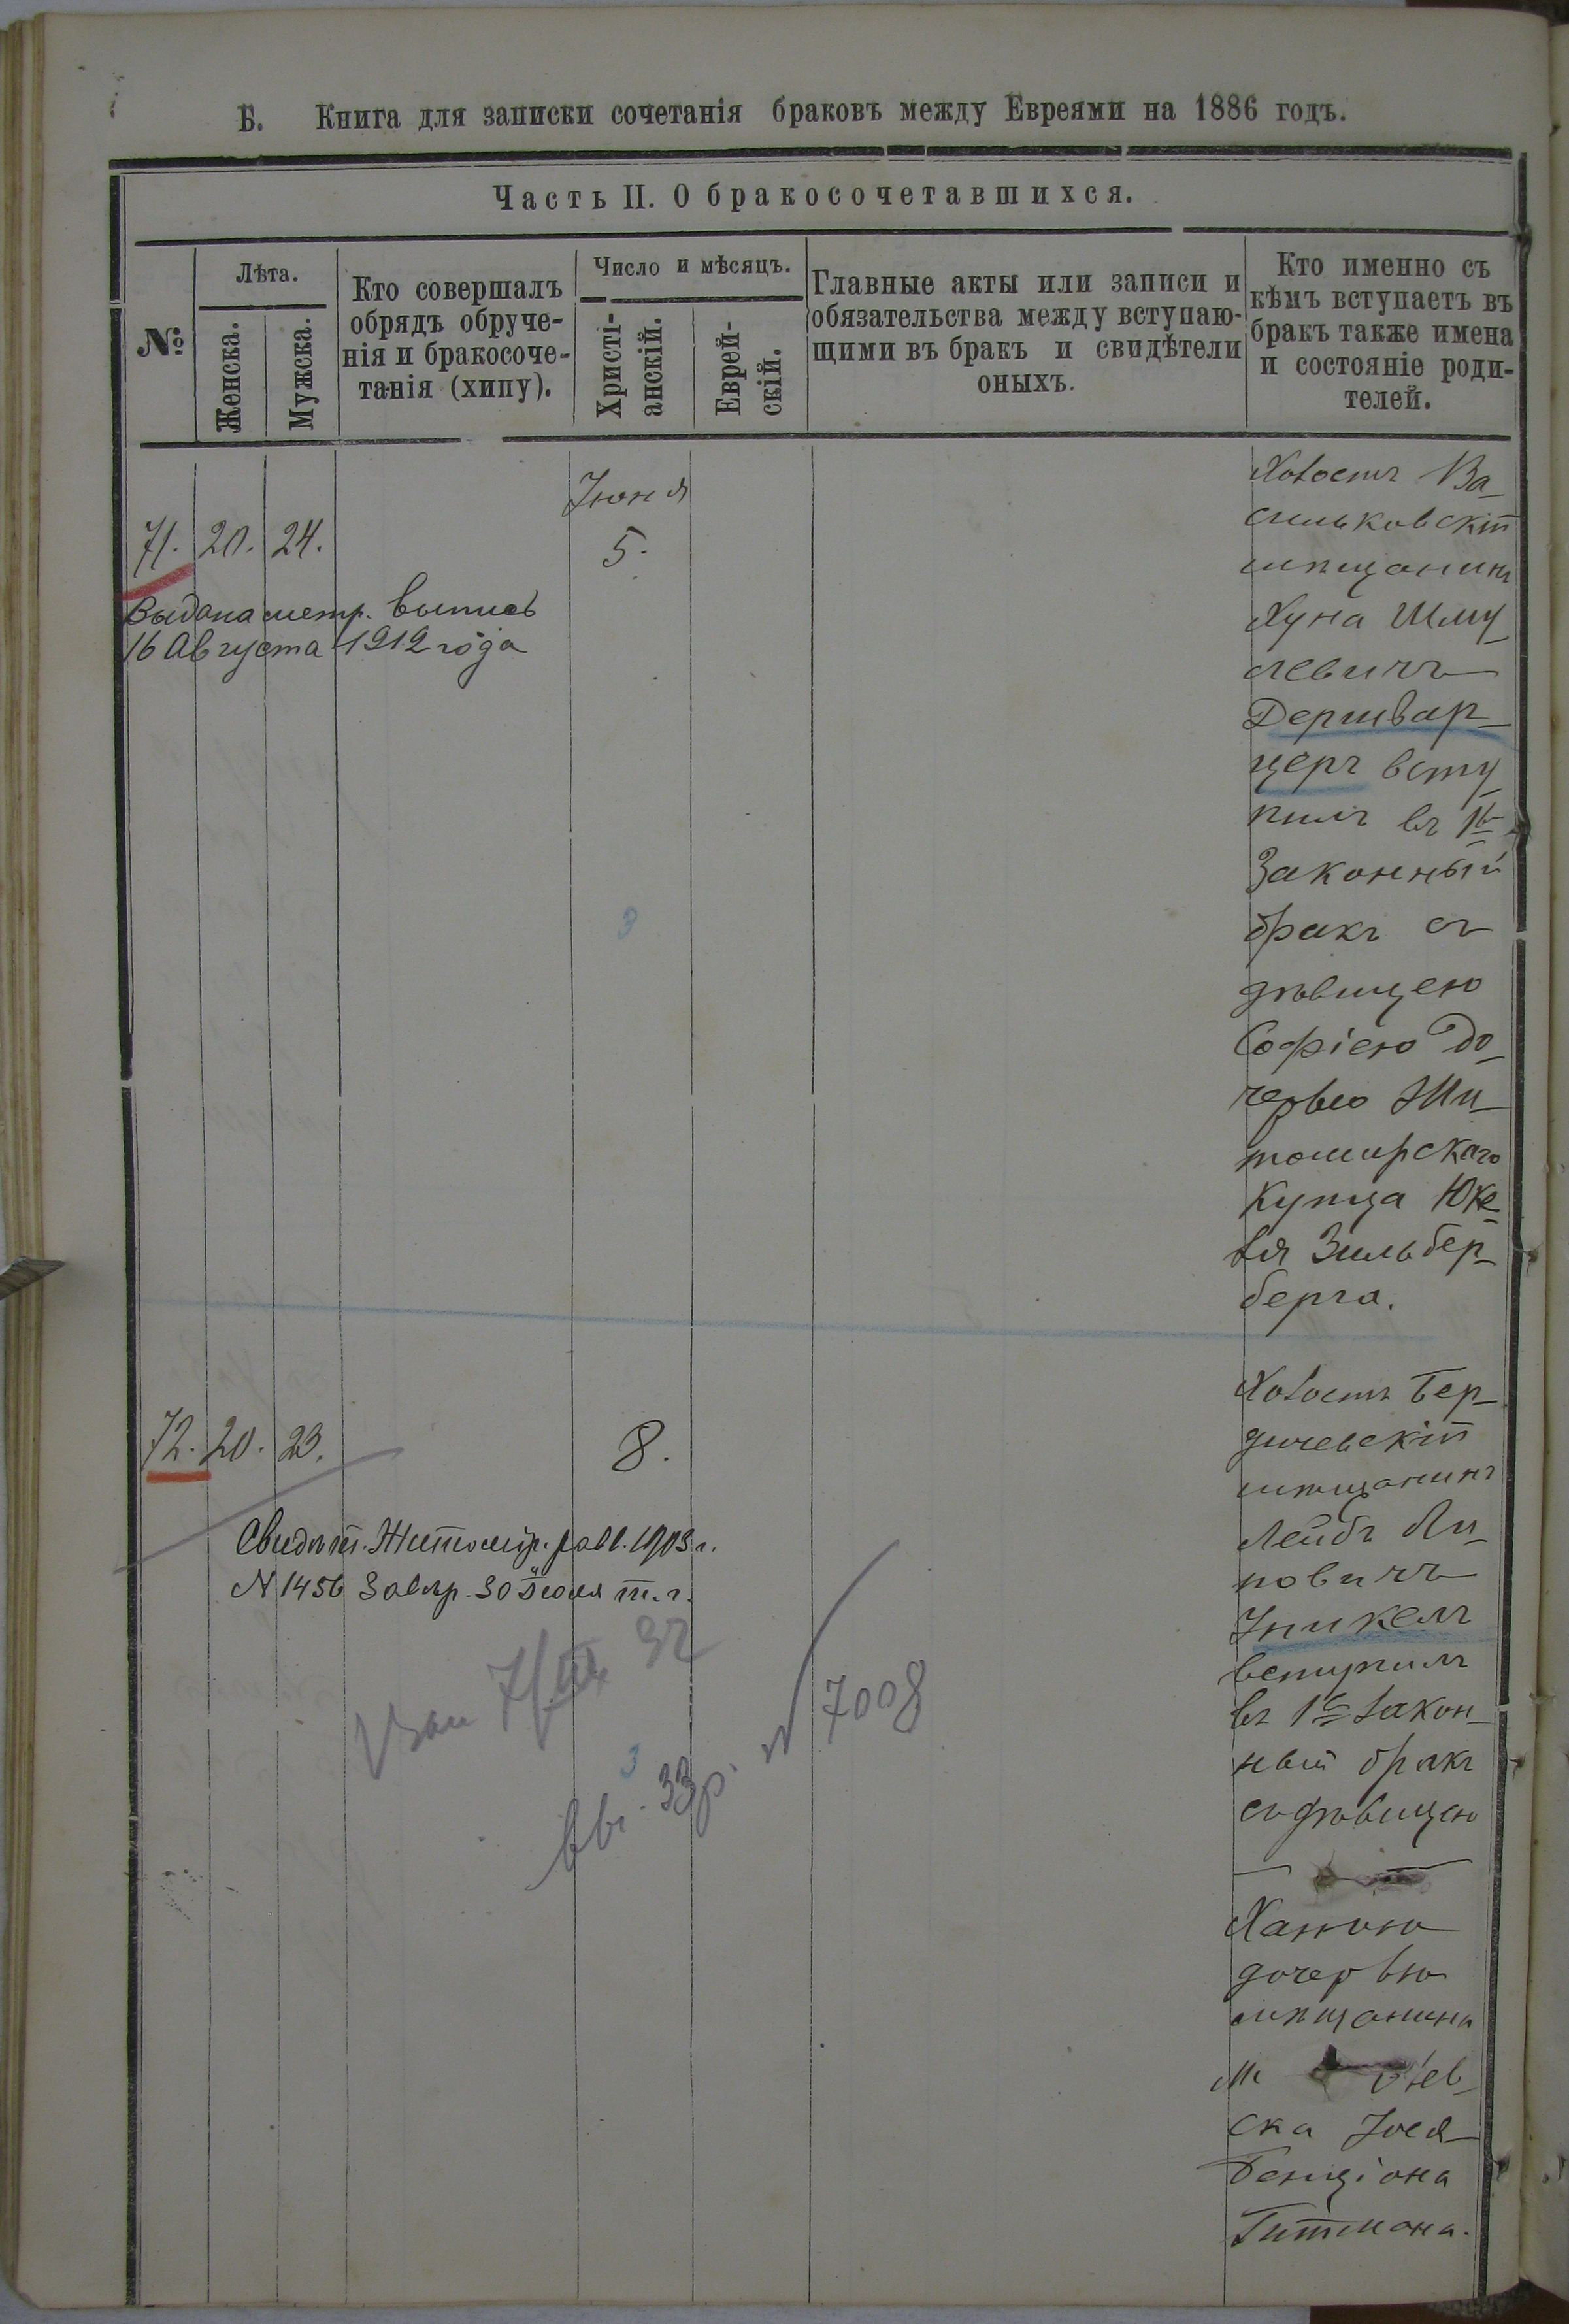 Б. Книга для записки сочетанія браковъ между Евреями на 1886 годъ.
Часть II. О бракосочетавшихся.
№
Лѣта.
Женска.
Мужска.
Кто совершалъ
обрядъ обруче-
нія и бракосоче-
танія (хипу).
Число и мѣсяцъ.
Христі-
анскій.
Еврей-
скій.
Главные акты или записи и
обязательства между вступаю-
щими въ бракъ и свидѣтели
оныхъ.
Кто именно съ
кѣмъ вступаетъ въ
бракъ также имена
и состояніе роди-
телей.
Іюня
71. 20. 24. 5.
Выдана метр. выпись
16 Августа 1912 года
Холостъ Ва-
сильковскій
мѣщанинъ
Хуна Шму
левичъ
Дершвар-
церъ всту
пилъ въ 1й
Законный
бракъ съ
дѣвицею
Софіею до-
черью Жи-
томирскаго
Купца Юке-
ля Зильбер-
берга.
3
72. 20. 23. 8.
Свидѣт. Житомір. равв. 1903 г.
N 1456 30 Іюля т. г.
7/III 32
N 7008
3
Холостъ Бер-
дичевскій
мѣщанинъ
Лейбъ Ли-
повичъ
вступилъ
въ 1й закон-
ный бракъ
съ дѣвицею
Ханою
дочерью
мѣщанина
м
ска Іося-
Бенціона
Гитмана.